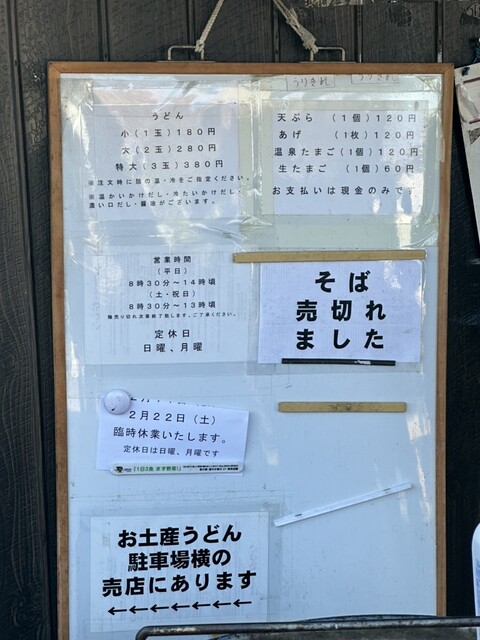 うりきれ
うりきれ
うどん
小(1玉)180円
大(2玉)280円
特大(3玉)380円
※注文時に麺の温・冷をご指定ください。
※温かいかけだし・冷たいかけだし・
濃い口だし・醤油がございます。
天ぷら (1個)120円
あげ (1枚)120円
温泉たまご(1個)120円
生たまご (1個)60円
お支払いは現金のみです
営業時間
(平日)
8時30分~14時頃
(土・祝日)
8時30分~13時頃
麺売り切れ次第終了致します。ご了承ください。
定休日
日曜、月曜
そば
売切れ
ました
2月22日(土)
臨時休業いたします。
定休日は日曜、月曜です
「1日3食 まず野菜!」
お土産うどん
駐車場横の
売店にあります
←←←←←←←